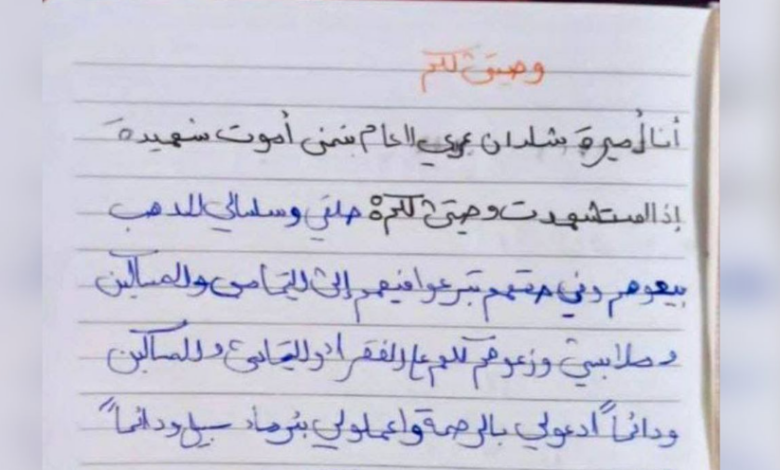 وصيتي لكم
أنا أميرة شلدان عمري 11 عام بتمنى أموت شهيدة
إذا استشهدت وصيتي لكم حلقي وسلسالي الذهب
بيعوهم وفي حقهم تبرعوا فيهم إلى اليتامى والمساكين
وملابسي وزعوهم كلهم عالفقراء واليتامى والمساكين
ودائماً ادعولي بالرحمة واعملولي بئر ماء سبيل ودائماً